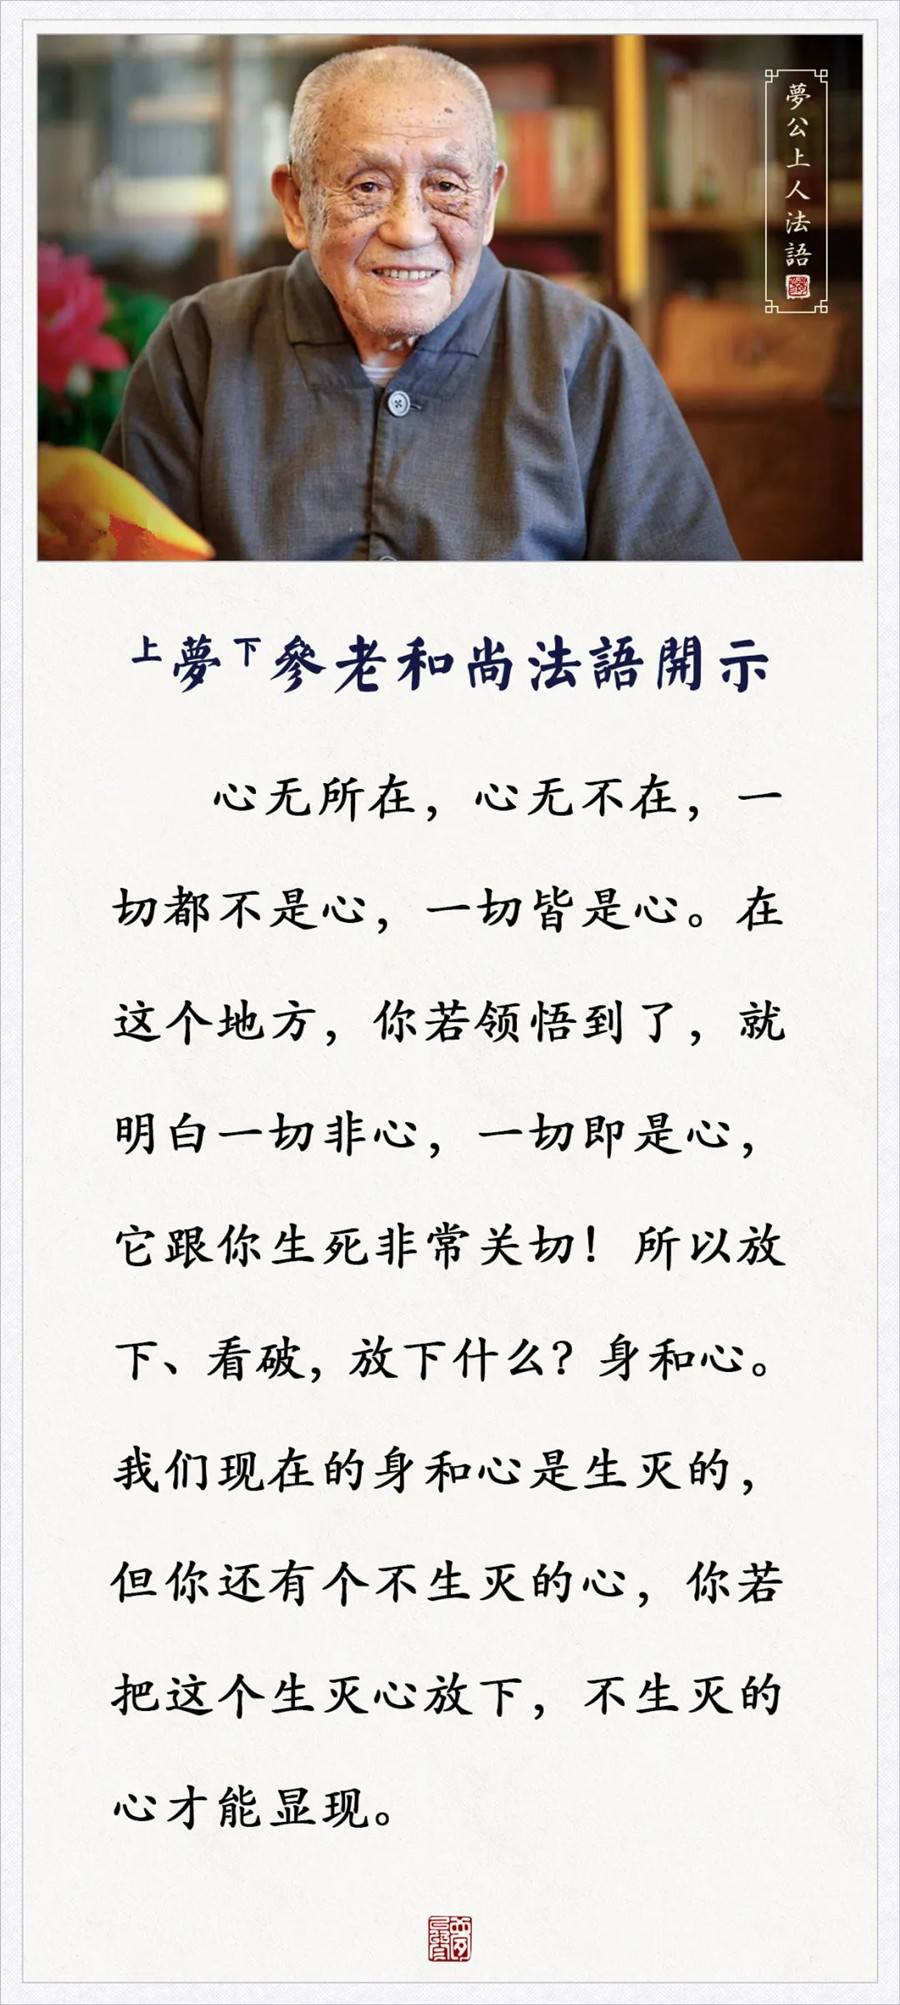 夢公上人法語
上夢下參老和尚法語開示
心无所在，心无不在，一
切都不是心，一切皆是心。在
这个地方，你若领悟到了，就
明白一切非心，一切即是心，
它跟你生死非常关切！所以放
下、看破，放下什么？身和心。
我们现在的身和心是生灭的，
但你还有个不生灭的心，你若
把这个生灭心放下，不生灭的
心才能显现。